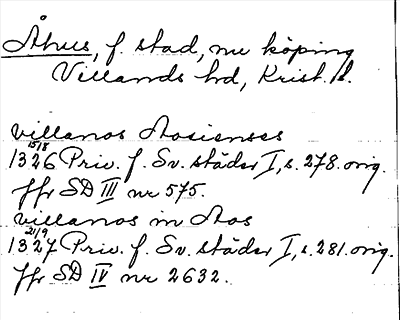 Åhus, f. stad, nu köping
Villands hd, Krist. l.
villanos Aosienses
15/8
1326 Priv. f. Sv. städer I, s. 278. orig.
Jfr SD III nr 575.
villanos in Aos
21/9
1327 Priv. f. Sv. städer I, s. 281. orig.
Jfr SD IV nr 2632.